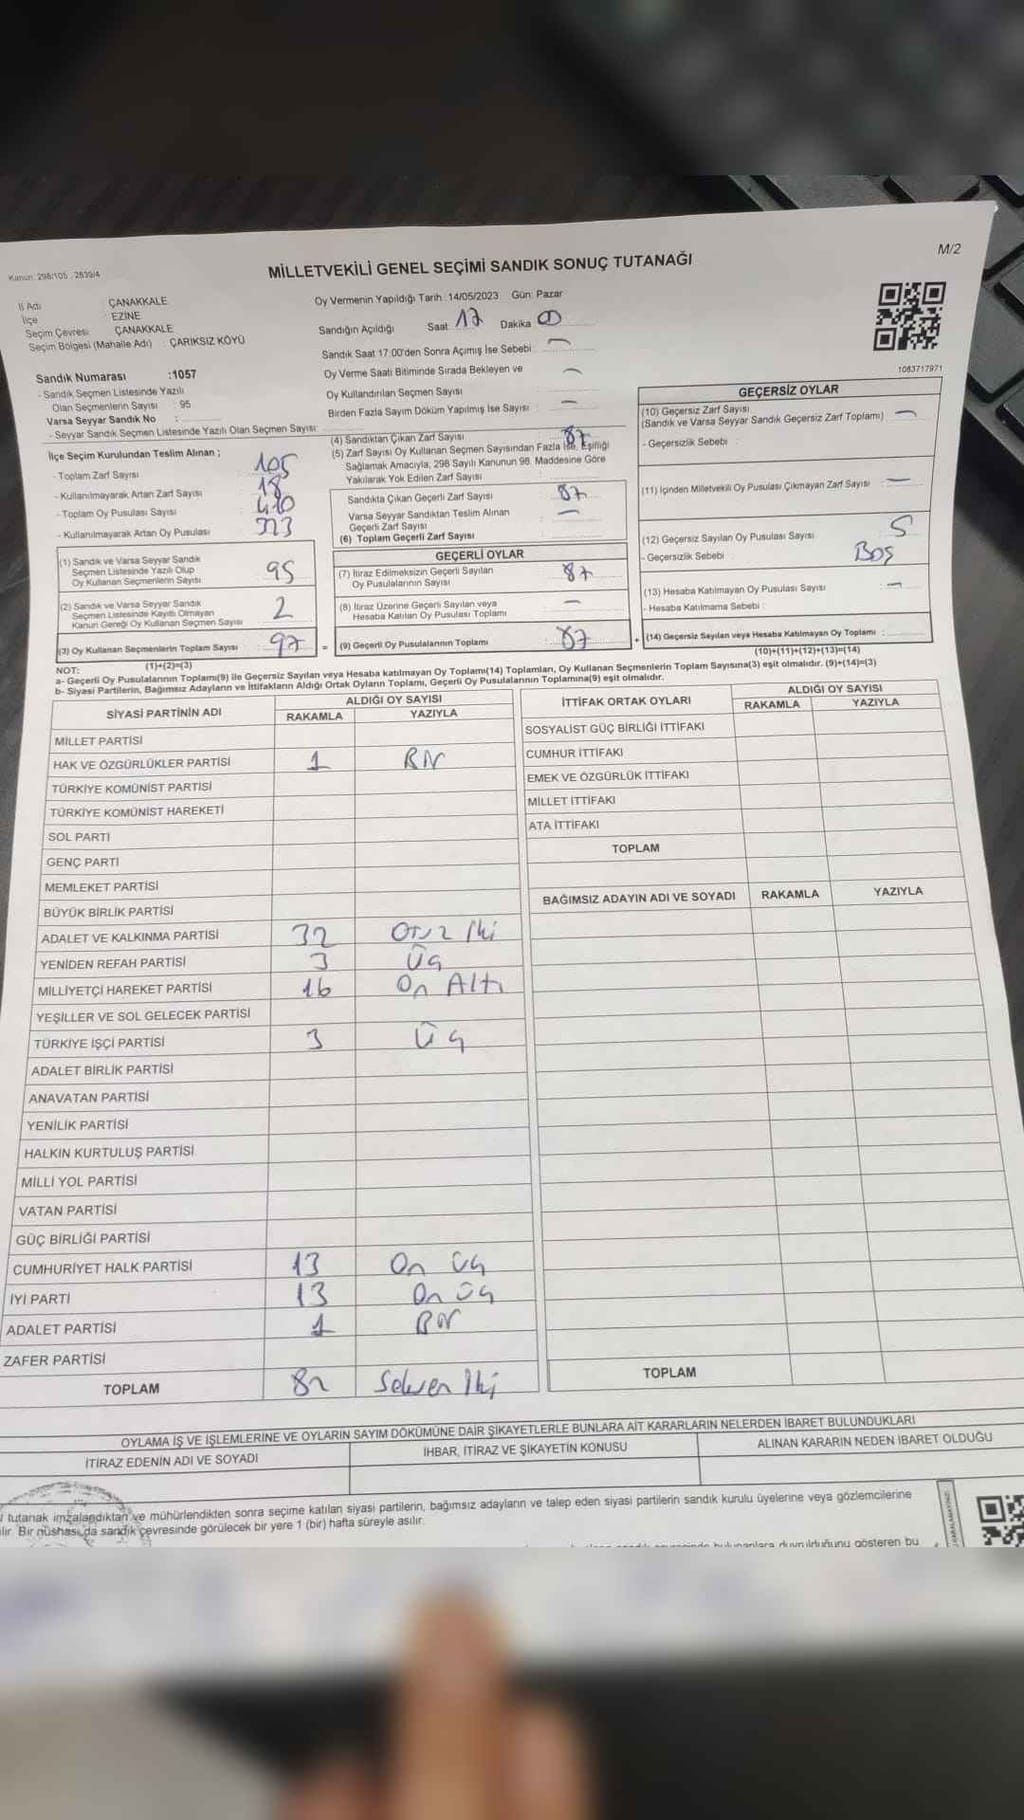 Kanun: 298/105 , 2839/4
M/2
MİLLETVEKİLİ GENEL SEÇİMİ SANDIK SONUÇ TUTANAĞI
İl Adı : ÇANAKKALE
İlçe : EZİNE
Seçim Çevresi : ÇANAKKALE
Seçim Bölgesi (Mahalle Adı) : ÇARIKSIZ KÖYÜ
Oy Vermenin Yapıldığı Tarih : 14/05/2023 Gün: Pazar
Sandığın Açıldığı Saat 17 Dakika
Sandık Saat 17:00'den Sonra Açılmış İse Sebebi : —
Oy Verme Saati Bitiminde Sırada Bekleyen ve
Oy Kullandırılan Seçmen Sayısı —
Birden Fazla Sayım Döküm Yapılmış İse Sayısı : —
1083717971
Sandık Numarası :1057
- Sandık Seçmen Listesinde Yazılı
Olan Seçmenlerin Sayısı : 95
Varsa Seyyar Sandık No :
- Seyyar Sandık Seçmen Listesinde Yazılı Olan Seçmen Sayısı :
İlçe Seçim Kurulundan Teslim Alınan ;
- Toplam Zarf Sayısı 105
- Kullanılmayarak Artan Zarf Sayısı 18
- Toplam Oy Pusulası Sayısı
- Kullanılmayarak Artan Oy Pusulası 323
(1) Sandık ve Varsa Seyyar Sandık
Seçmen Listesinde Yazılı Olup
Oy Kullanan Seçmenlerin Sayısı 95
(2) Sandık ve Varsa Seyyar Sandık
Seçmen Listesinde Kayıtlı Olmayan
Kanun Gereği Oy Kullanan Seçmen Sayısı 2
(3) Oy Kullanan Seçmenlerin Toplam Sayısı 97
(1)+(2)=(3)
(4) Sandıktan Çıkan Zarf Sayısı 87
(5) Zarf Sayısı Oy Kullanan Seçmen Sayısından Fazla İse, Eşitliği
Sağlamak Amacıyla, 298 Sayılı Kanunun 98. Maddesine Göre
Yakılarak Yok Edilen Zarf Sayısı
Sandıkta Çıkan Geçerli Zarf Sayısı 87
Varsa Seyyar Sandıktan Teslim Alınan
Geçerli Zarf Sayısı —
(6) Toplam Geçerli Zarf Sayısı :
GEÇERLİ OYLAR
(7) İtiraz Edilmeksizin Geçerli Sayılan
Oy Pusulalarının Sayısı 87
(8) İtiraz Üzerine Geçerli Sayılan veya
Hesaba Katılan Oy Pusulası Toplamı : —
= (9) Geçerli Oy Pusulalarının Toplamı : 87
GEÇERSİZ OYLAR
(10) Geçersiz Zarf Sayısı
(Sandık ve Varsa Seyyar Sandık Geçersiz Zarf Toplamı) : —
- Geçersizlik Sebebi :
(11) İçinden Milletvekili Oy Pusulası Çıkmayan Zarf Sayısı : —
(12) Geçersiz Sayılan Oy Pusulası Sayısı 5
- Geçersizlik Sebebi : Boş
(13) Hesaba Katılmayan Oy Pusulası Sayısı : —
- Hesaba Katılmama Sebebi :
+ (14) Geçersiz Sayılan veya Hesaba Katılmayan Oy Toplamı :
(10)+(11)+(12)+(13)=(14)
NOT:
a- Geçerli Oy Pusulalarının Toplamı(9) ile Geçersiz Sayılan veya Hesaba katılmayan Oy Toplamı(14) Toplamları, Oy Kullanan Seçmenlerin Toplam Sayısına(3) eşit olmalıdır. (9)+(14)=(3)
b- Siyasi Partilerin, Bağımsız Adayların ve İttifakların Aldığı Ortak Oyların Toplamı, Geçerli Oy Pusulalarının Toplamına(9) eşit olmalıdır.
SİYASİ PARTİNİN ADI ALDIĞI OY SAYISI
RAKAMLA YAZIYLA
MİLLET PARTİSİ
HAK VE ÖZGÜRLÜKLER PARTİSİ 1 BİR
TÜRKİYE KOMÜNİST PARTİSİ
TÜRKİYE KOMÜNİST HAREKETİ
SOL PARTİ
GENÇ PARTİ
MEMLEKET PARTİSİ
BÜYÜK BİRLİK PARTİSİ
ADALET VE KALKINMA PARTİSİ 32 Otuz İki
YENİDEN REFAH PARTİSİ 3 Üç
MİLLİYETÇİ HAREKET PARTİSİ 16 On Altı
YEŞİLLER VE SOL GELECEK PARTİSİ
TÜRKİYE İŞÇİ PARTİSİ 3 Üç
ADALET BİRLİK PARTİSİ
ANAVATAN PARTİSİ
YENİLİK PARTİSİ
HALKIN KURTULUŞ PARTİSİ
MİLLİ YOL PARTİSİ
VATAN PARTİSİ
GÜÇ BİRLİĞİ PARTİSİ
CUMHURİYET HALK PARTİSİ 13 On üç
İYİ PARTİ 13 On üç
ADALET PARTİSİ 1 BİR
ZAFER PARTİSİ
TOPLAM 82 Seksen İki
İTTİFAK ORTAK OYLARI ALDIĞI OY SAYISI
RAKAMLA YAZIYLA
SOSYALİST GÜÇ BİRLİĞİ İTTİFAKI
CUMHUR İTTİFAKI
EMEK VE ÖZGÜRLÜK İTTİFAKI
MİLLET İTTİFAKI
ATA İTTİFAKI
TOPLAM
BAĞIMSIZ ADAYIN ADI VE SOYADI RAKAMLA YAZIYLA
TOPLAM
OYLAMA İŞ VE İŞLEMLERİNE VE OYLARIN SAYIM DÖKÜMÜNE DAİR ŞİKAYETLERLE BUNLARA AİT KARARLARIN NELERDEN İBARET BULUNDUKLARI
İTİRAZ EDENİN ADI VE SOYADI İHBAR, İTİRAZ VE ŞİKAYETİN KONUSU ALINAN KARARIN NEDEN İBARET OLDUĞU
tutanak imzalandıktan ve mühürlendikten sonra seçime katılan siyasi partilerin, bağımsız adayların ve talep eden siyasi partilerin sandık kurulu üyelerine veya gözlemcilerine
Bir nüshası da sandık çevresinde görülecek bir yere 1 (bir) hafta süreyle asılır.
bulunanlara duyrulduğunu gösteren bu